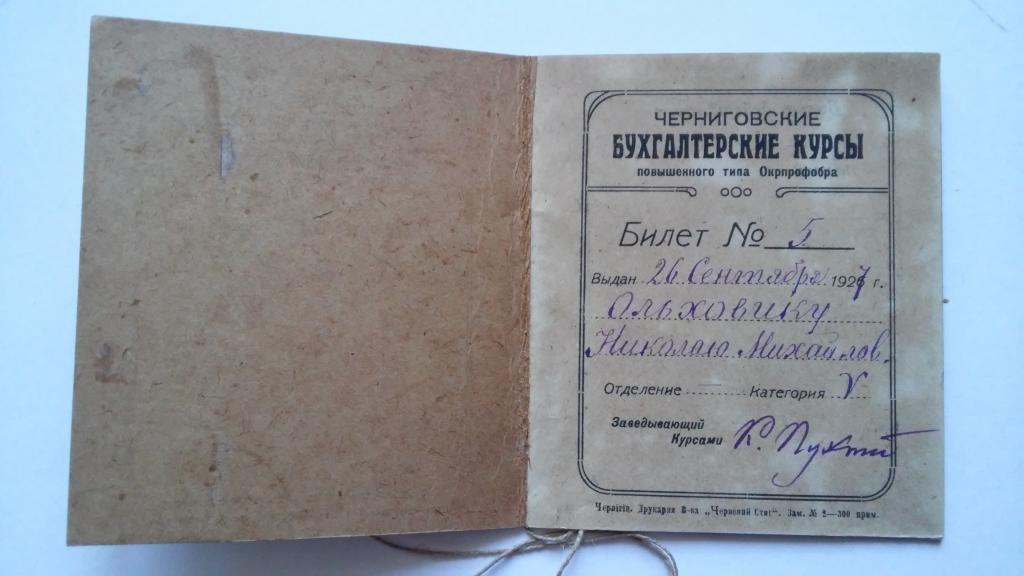 ЧЕРНИГОВСКИЕ
БУХГАЛТЕРСКИЕ КУРСЫ
повышенного типа Окрпрофобра
Билет № 5
Выдан 26 Сентября 1927 г.
Ольховику
Николаю Михайлов.
Отделение — Категория V
Заведывающий
Курсами К.
Чернігів. Друкарня В-ва „Червоний Стяг“. Зам. № 2—300 прим.